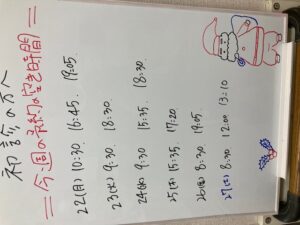 初診の方へ
=今週の予約の空き時間=
22(月) 10:30 16:45. 19:05.
23(火) 9:30 18:30
24(水) 9:30 15:35. 18:30.
25(木) 15:35. 17:20
26(金) 8:30 19:05
27(土) 8:30 12:00 13:10